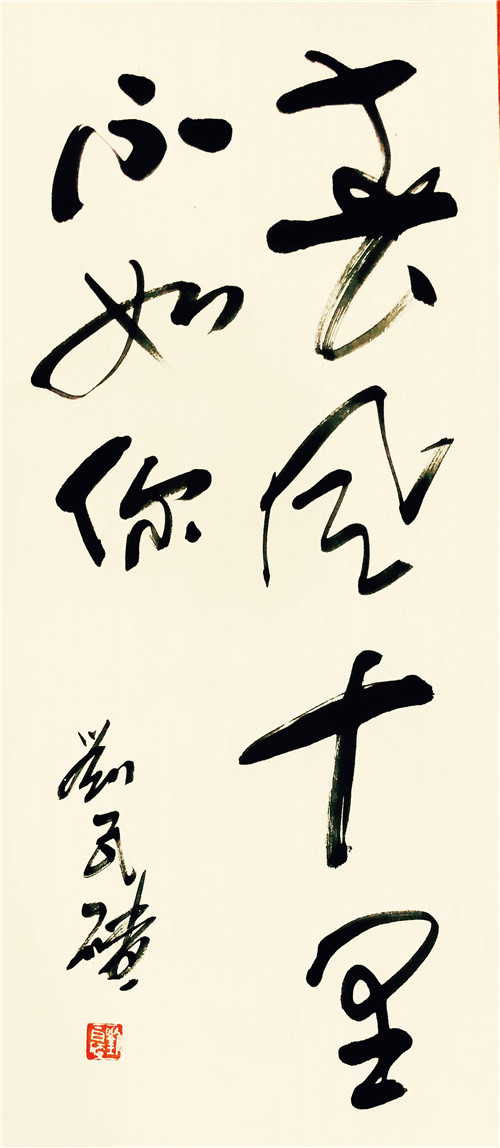 春风十里
不如你
刘民碛